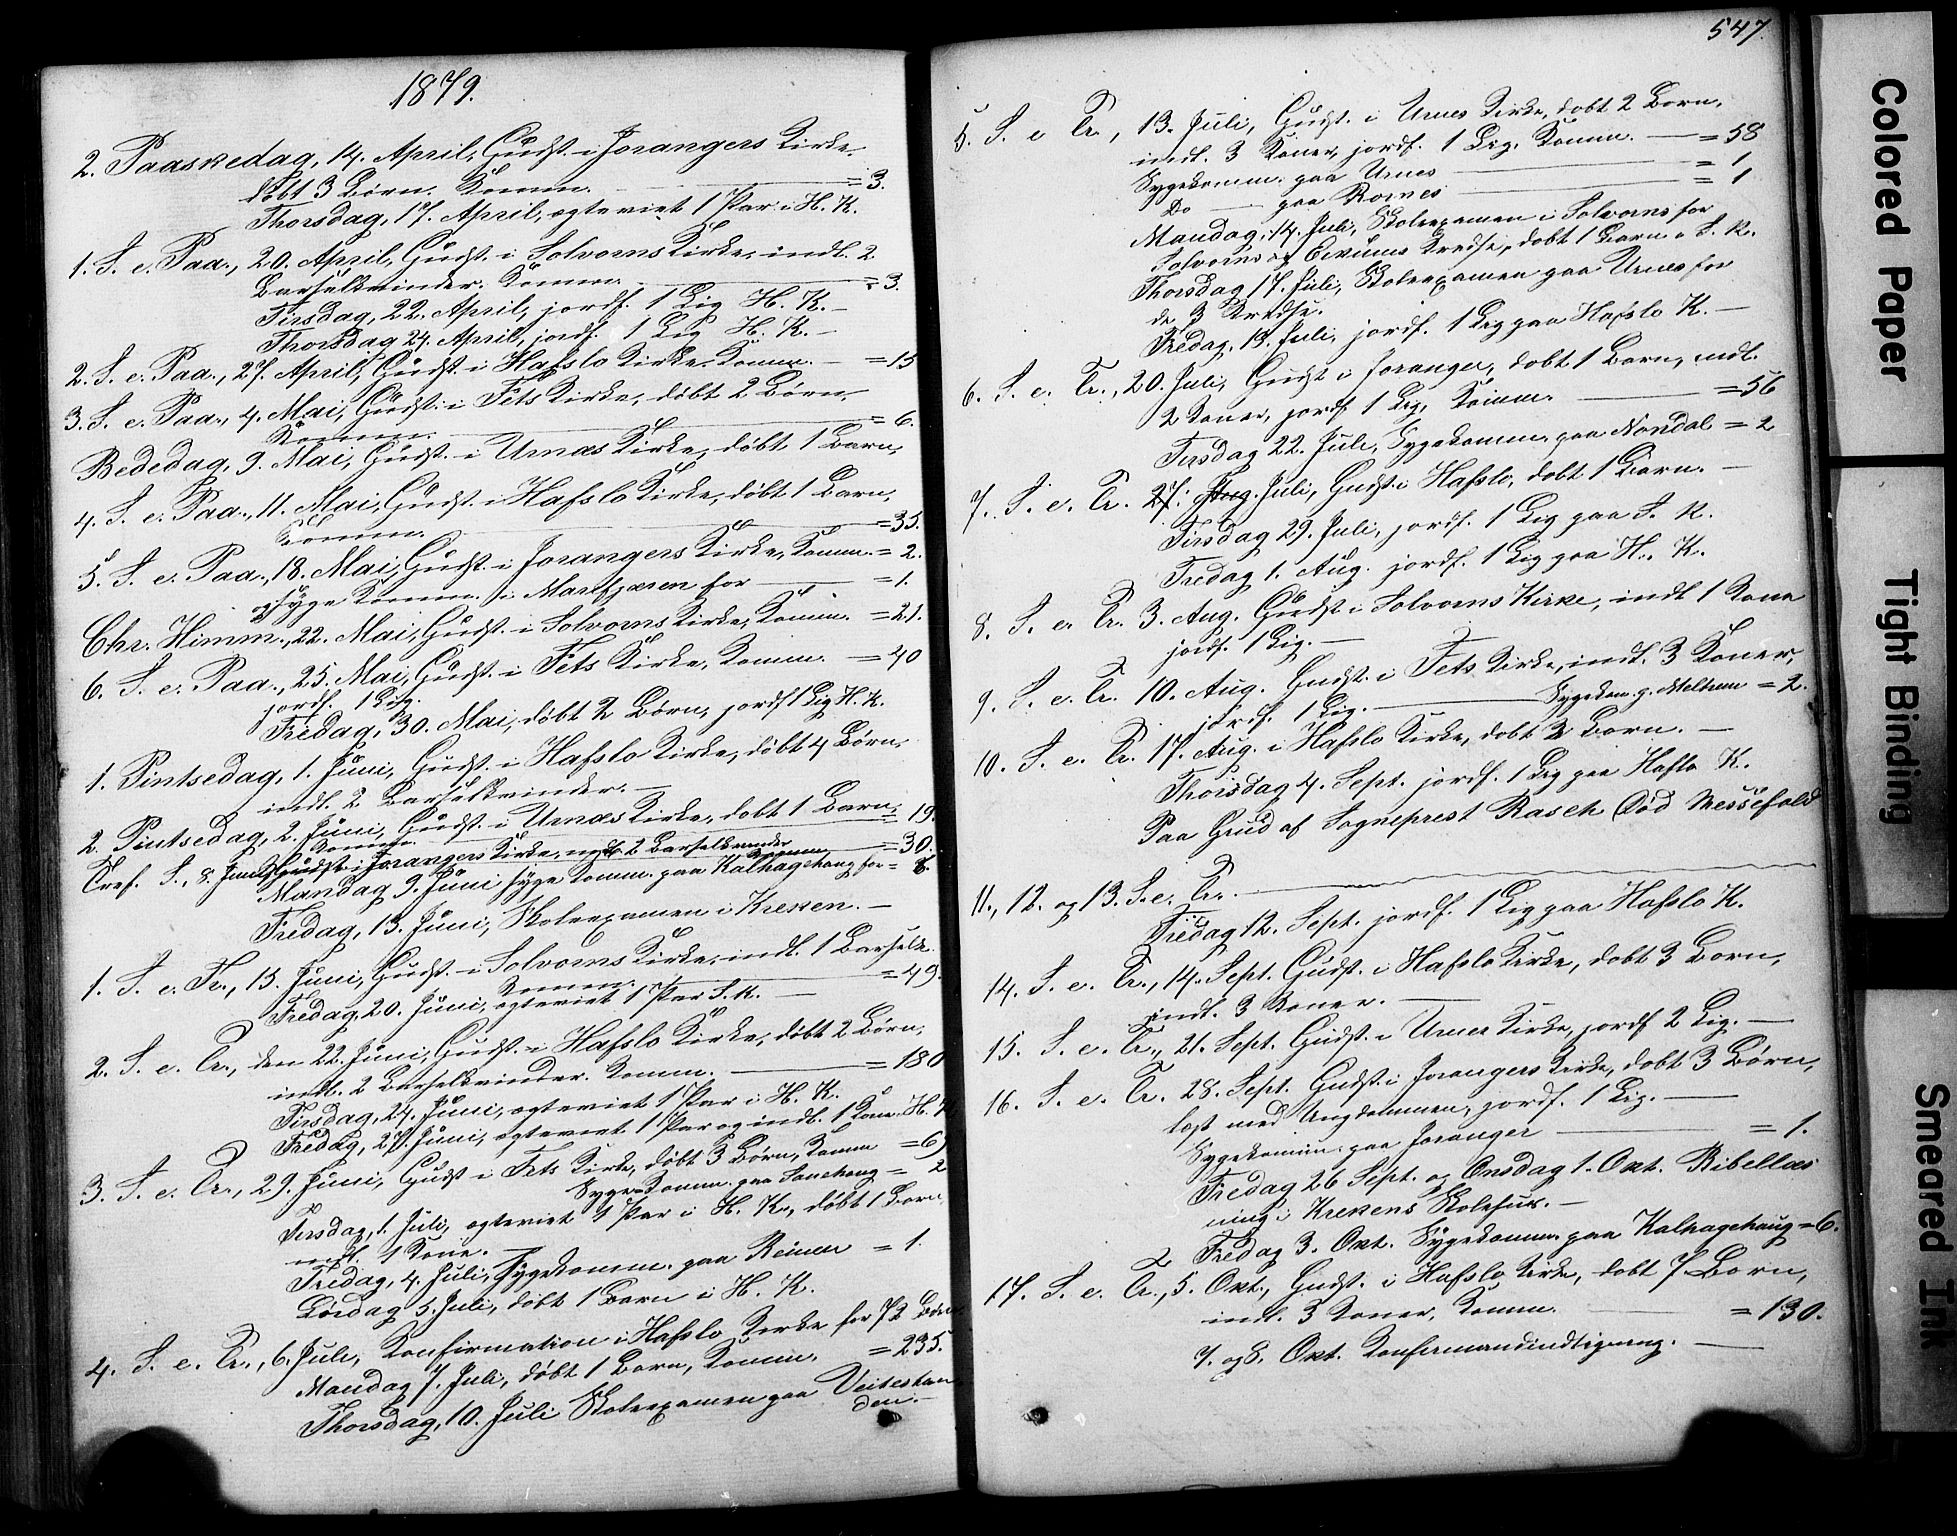 1879.
2. Paaskedag, 14. April, Gudst. i Jorangers Kirke.
døbt 3 Børn. Komm. = 3.
Thorsdag, 17. April, ægteviet 1 Par i H. K.
1. S. e. Paa., 20. April, Gudst. i Solvorns Kirke, indl. 2
Barselkvinder. Komm. = 3.
Tirsdag, 22. April, jordf. 1 Lig H. K. –
Thorsdag 24. April, jordf. 1 Lig H. K. –
2. S. e. Paa., 27. April, Gudst. i Hafslo Kirke. Komm. – = 15
3. S. e. Paa., 4. Mai, Gudst. i Fets Kirke, døbt 2 Børn,
Komm. = 6.
Bededag, 9. Mai, Gudst. i Urnæs Kirke, døbt 1 Barn,
4. S. e. Paa., 11. Mai, Gudst. i Hafslo Kirke, døbt 1 Barn,
Komm. = 35.
5. S. e. Paa., 18. Mai, Gudst. i Jorangers Kirke, Komm. = 2.
og Syge Komm. i Marifjæren for = 1.
Chr. Himm., 22. Mai, Gudst. i Solvorns Kirke, Komm. = 21.
6. S. e. Paa., 25. Mai, Gudst. i Fets Kirke, Komm. = 40
jordf. 1 Lig.
Fredag, 30. Mai, døbt 2 Børn, jordf 1 Lig H. K.
1. Pintsedag, 1. Juni, Gudst. i Hafslo Kirke, døbt 4 Børn,
indl. 2 Barselkvinder. –
2. Pintsedag, 2. Juni, Gudst. i Urnæs Kirke, døbt 1 Barn,
Komm. = 19.
Tref. S., 8. Juni, Gudst. i Jorangers Kirke, indl. 2 Barselkvinder
Komm = 30.
Mandag 9. Juni syge Komm. paa Kalhagehaug for = 8.
Fredag, 13. Juni, Skoleexamen i Kreken. –
1. S. e. Tr., 15. Juni, Gudst. i Solvorns Kirke, indl. 1 Barselk.
Komm. = 49.
Fredag, 20. Juni, ægteviet 1 Par S. K. –
2. S. e. Tr., den 22. Juni, Gudst. i Hafslo Kirke, døbt 2 Børn,
indl. 2 Barselkvinder. Komm. = 180
Tirsdag, 24. Juni, ægteviet 1 Par i H. K.
Fredag, 27. Juni, ægteviet 1 Par og indl. 1 Kone H. K
3. S. e. Tr., 29. Juni, Gudst i Fets Kirke, døbt 3 Børn, Komm = 69
Syge Komm. paa = 2
Tirsdag, 1. Juli, ægteviet 1 Par i H. K., døbt 1 Barn
indl. 1 Kone. –
Fredag, 4. Juli, Sygekomm. paa = 1.
Lørdag 5. Juli, døbt 1 Barn i H. K.
4. S. e. Tr., 6. Juli, Konfirmation i Hafslo Kirke for 72 Børn
Mandag 7. Juli, døbt 1 Barn, Komm. = 235.
Thorsdag, 10. Juli Skoleexamen paa Veitestran
den. –
547.
5. S. e Tr., 13. Juli, Gudst. i Urnes Kirke, døbt 2 Børn,
indl. 3 Koner, jordf. 1 Lig. Komm. = 58
Sygekomm. paa Urnes = 1
Do – paa = 1
Mandag, 14. Juli, Skoleexamen i Solvorns for
Solvorns og Eikums Kredse, døbt 1 Barn i S. K.
Thorsdag 17. Juli, Skoleexamen paa Urnes for
de 3 Kredse.
Fredag, 18. Juli, jordf. 1 Lig paa Hafslo K. –
6. S. e. Tr., 20. Juli, Gudst i Joranger, døbt 1 Barn, indl.
2 Koner, jordf. 1 Lig, Komm. = 56
Tirsdag 22. Juli, Sygekomm. paa Nondal = 2
7. S. e. Tr. 27. Juli, Gudst. i Hafslo, døbt 1 Barn. –
Tirsdag 29. Juli, jordf. 1 Lig paa S. K.
Fredag 1. Aug. jordf. 1 Lig paa H. K.
8. S. e. Tr. 3. Aug. Gudst i Solvorns Kirke, indl 1 Kone
jordf. 1 Lig. –
9. S. e. Tr. 10. Aug. Gudst. i Fets Kirke, indl. 3 Koner,
jordf. 1 Lig. – Sygekom. p. Melheim = 2.
10. S. e. Tr. 17. Aug. i Hafslo Kirke, døbt 2 Børn. –
Thorsdag 4. Sept. jordf. 1 Lig paa Hafslo K.
Paa Grund af Sogneprest Rasch Død Messefald
11., 12. og 13. S. e. Tr.
Fredag 12. Sept. jordf. 1 Lig paa Hafslo K.
14. S. e. Tr., 14. Sept. Gudst. i Hafslo Kirke, døbt 3 Børn,
indl. 3 Koner. –
15. S. e. Tr., 21. Sept. Gudst. i Urnes Kirke, jordf 2 Lig. –
16. S. e. Tr. 28. Sept. Gudst. i Jorangers Kirke, døbt 3 Børn,
læst med Ungdommen, jordf. 1 Lig. –
Sygekomm. paa Joranger = 1.
Fredag 26 Sept. og Onsdag 1. Okt. Bibellæs
ning i Krekens Skolehus. –
Fredag 3. Okt. Sygekomm. paa Kalhagehaug = 6.
17. S. e. Tr., 5. Okt., Gudst. i Hafslo Kirke, døbt 7 Børn,
indl. 3 Koner, Komm. = 130.
7. og 8. Okt. Konfirmandindtegning. –
Colored Paper
Tight Binding
Smeared Ink